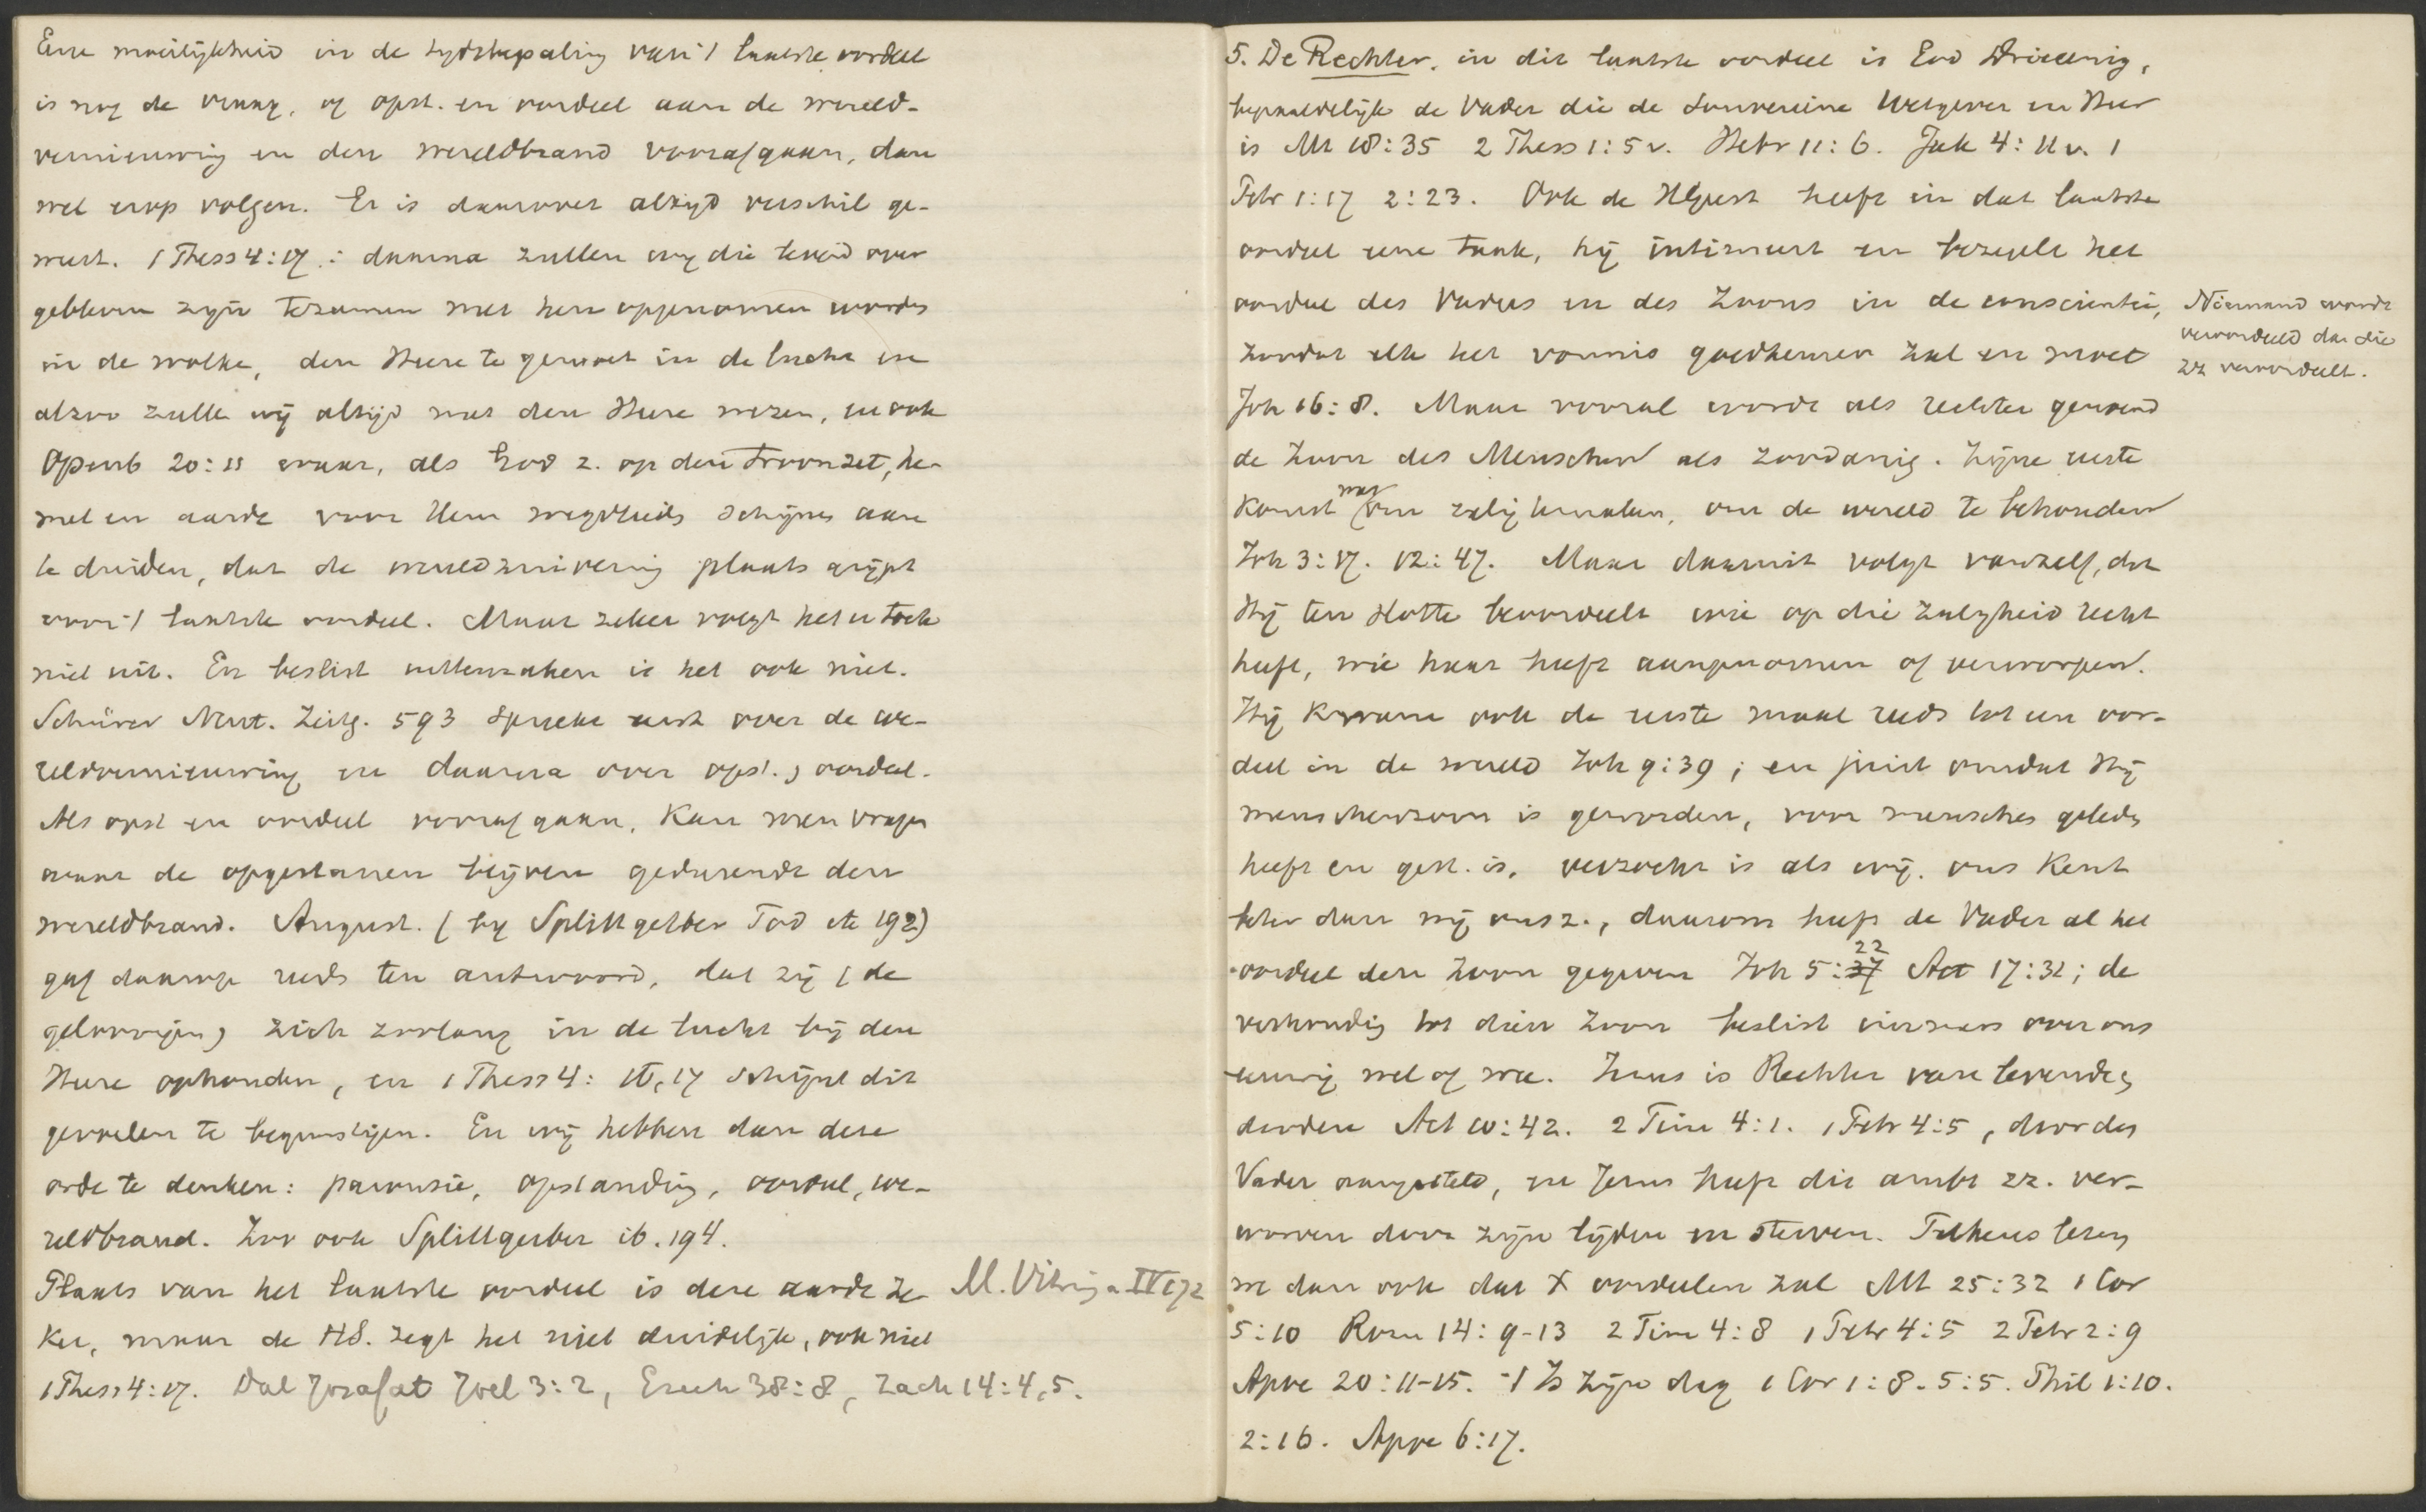 Eene moeilijkheid in de tydsbepaling van 't laatste oordeel
is nog de vraag, of opst. en oordeel aan de wereld-
vernieuwing en den wereldbrand voorafgaan, dan
wel erop volgen. Er is daarover altyd verschil ge-
weest. 1 Thess 4:17 : daarna zullen wy die levend over
gebleven zyn tezamen met hen opgenomen worden
in de wolke, den Heere te gemoet in de lucht en
alzoo zulle wij altijd met den Heere wezen, en ook
Openb 20:11 waar, als God z. op den troon zet, he-
mel en aarde voor Hem wegvlieds schijnen aan
te duiden, dat de wereldzuivering plaats grijpt
voor 't laatste oordeel. Maar zeker volgt het er toch
niet uit. En beslist uittemaken is het ook niet.
Schürer Neut. Zeitg. 593 spreekt eerst over de we-
reldvernieuwing en daarna over opst. & oordeel.
Als opst en oordeel voorafgaan, kan men vragen
waar de opgestanen blijven gedurende den
wereldbrand. August. (by Splittgerber Tod etc 192)
gaf daarop reeds ten antwoord, dat zij (de
geloovigen) zich zoolang in de lucht bij den
Heere ophouden, en 1 Thess 4: 16, 17 schijnt dit
gevoelen te begunstigen. En wij hebben dan deze
orde te denken: parousie, opstanding, oordeel, we-
reldbrand. Zoo ook Splittgerber ib. 194.
Plaats van het laatste oordeel is deze aarde ze-
ker, maar de HS. zegt het niet duidelijk, ook niet
1 Thess 4:17. Dal Josafat Joel 3:2, Ezech 38:8, Zach 14:4,5.
M. Vitringa IV 172
5. De Rechter in dit laatste oordeel is God Drieeenig,
bepaaldelijk de Vader die de Souvereine Wetgever en Heer
is Mt 18:35 2 Thess 1:5 v. Hebr 11:6. Jak 4:11 v. 1
Petr 1:17 2:23. Ook de HGeest heeft in dat laatste
oordeel eene taak, hij intimeert en bezegelt het
oordeel des Vaders en des Zoons in de conscientie,
zoodat elk het vonnis goedkeuren zal en moet
Joh 16:8. Maar vooral wordt als rechter genoemd
de Zoon des Menschen als zoodanig. Zijne eerste
komst was om zalig temaken, om de wereld te behouden
Joh 3:17. 12:47. Maar daaruit volgt vanzelf, dat
Hij ten slotte beoordeelt wie op die zaligheid recht
heeft, wie haar heeft aangenomen of verworpen.
Hij kwam ook de eerste maal reeds tot een oor-
deel in de wereld Joh 9:39; en juist omdat Hij
menschenzoon is geworden, voor menschen geleden
heeft en gest. is, verzocht is als wij, ons kent
beter dan wij ons z., daarom heeft de Vader al het
oordeel den Zoon gegeven Joh 5:27 22 Act 17:31; de
verhouding tot dien Zoon beslist eenmaal over ons
eeuwig wel of wee. Jezus is Rechter van levenden &
dooden Act 10:42. 2 Tim 4:1. 1 Petr 4:5, door den
Vader aangesteld, en Jezus heeft dit ambt zz. ver-
worven door zijn lijden en sterven. Telkens lezen
we dan ook dat X oordeelen zal Mt 25:32 1 Cor
5:10 Rom 14:9-13 2 Tim 4:8 1 Petr 4:5 2 Petr 2:9
Apoc 20:11-15. 't Is zijn dag 1 Cor 1:8. 5:5. Phil 1:10.
2:16. Apoc 6:17.
Niemand wordt
veroordeeld dan die
zz veroordeelt.